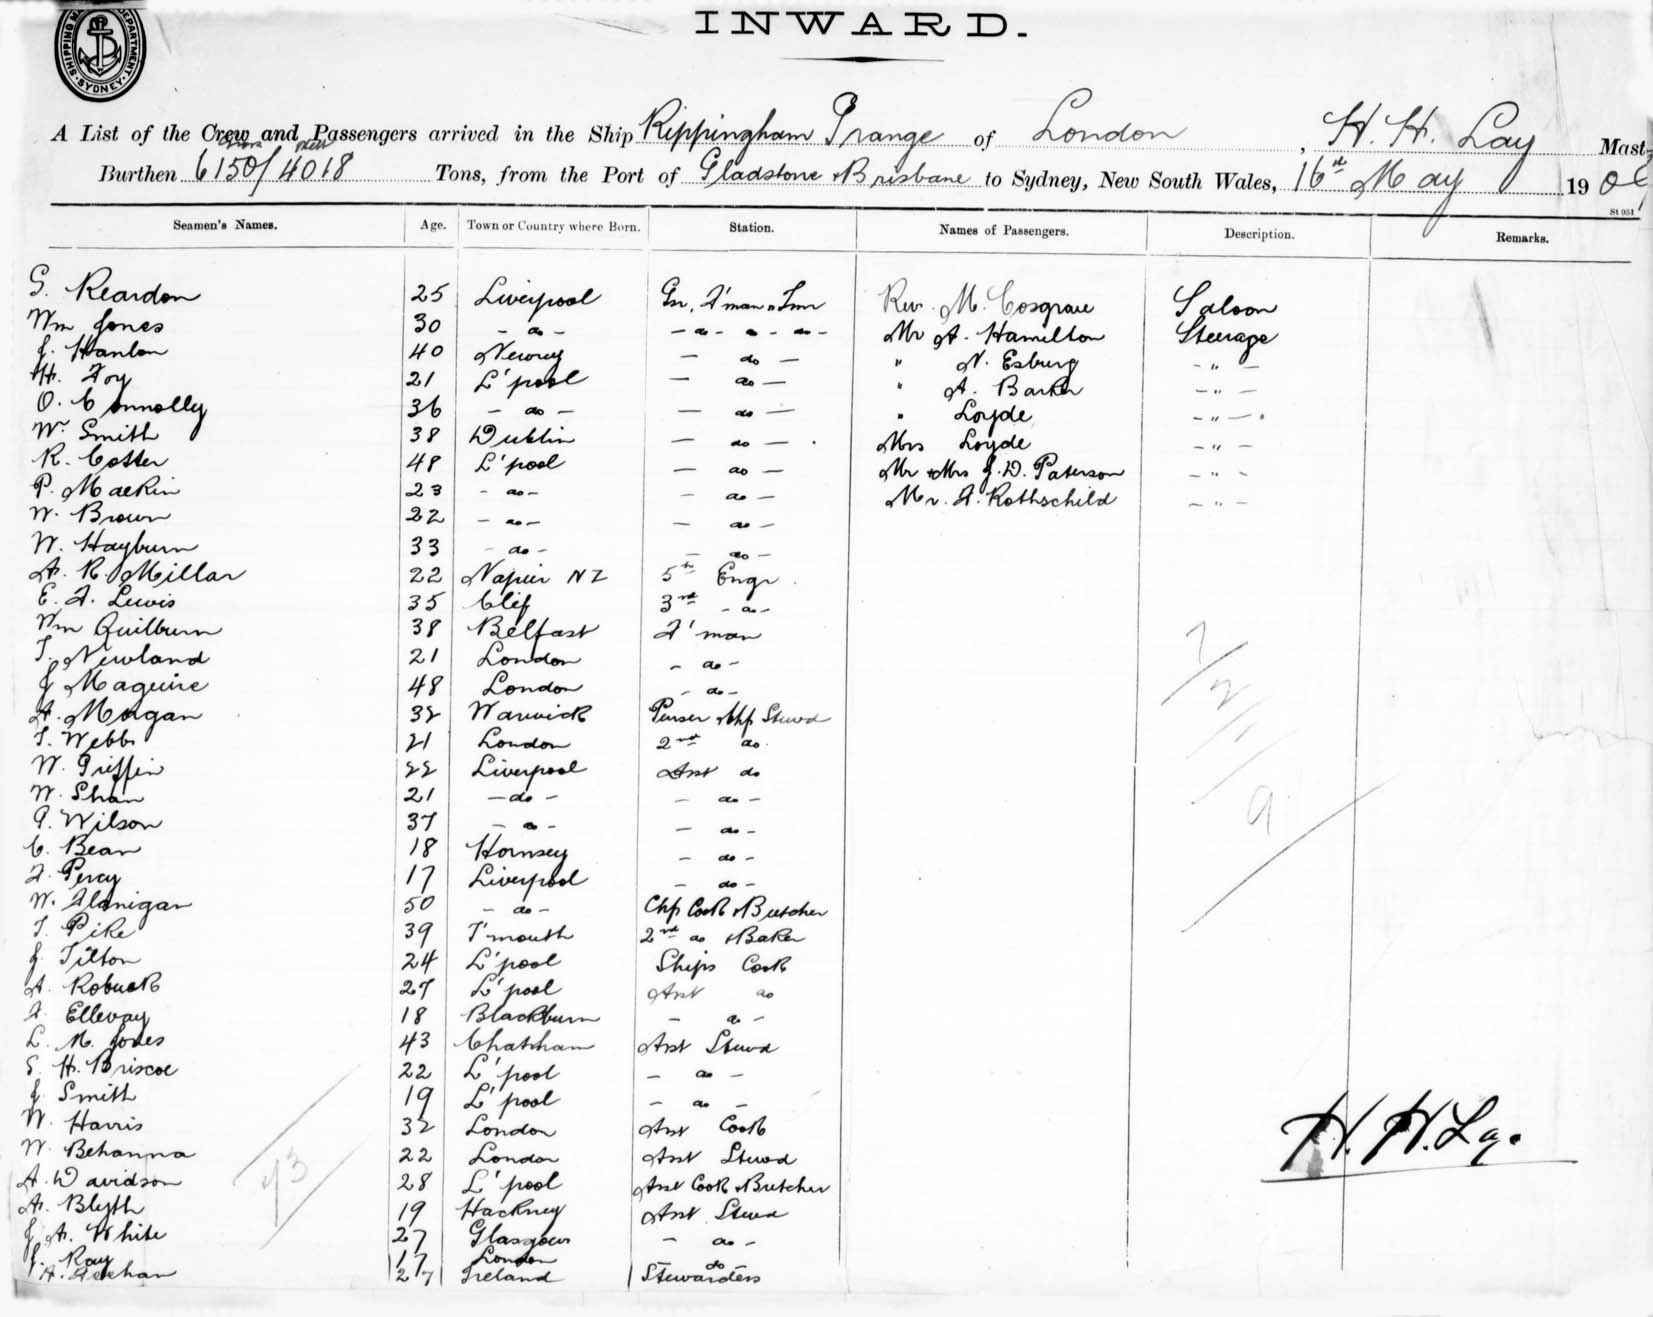 SHIPPING MA DEPARTMENT. SYDNEY.
INWARD.
A List of the Crew and Passengers arrived in the Ship Rippingham Grange of London, H. H. Lay Mast
Gross Nett
Burthen 6150/4018 Tons, from the Port of Gladstone & Brisbane to Sydney, New South Wales, 16th May 190
St 951
Seamen's Names. Age. Town or Country where Born. Station. Names of Passengers. Description. Remarks.
G. Reardon 25 Liverpool Gr, F'man, Tmr Rev. M. Cosgrave Saloon
Wm Jones 30 - do - - do - do - do - Mr A. Hamilton Steerage
J. Hanlon 40 Newry - do - " N. Esburg - " -
H. Foy 21 L'pool - do - " A. Barker - " -
O. Connolly 36 - do - - do - " Loyde - " -
W. Smith 38 Dublin - do - Mrs Loyde - " -
R. Cotter 48 L'pool - do - Mr & Mrs J. D. Paterson - " -
P. Mackin 23 - do - - do - Mr. F. Rothschild - " -
W. Brown 22 - do - - do -
W. Hayburn 33 - do - - do -
A. R. Millar 22 Napier NZ 5th Engr
E. F. Lewis 35 3rd - do -
Wm Quilburn 38 Belfast F'man
T. Newland 21 London - do -
J Maguire 48 London - do -
A. Morgan 32 Warwick Purser & Chf Stewd
T. Webb 21 London 2nd do
W. Griffin 22 Liverpool Asst do
W. Shan 21 - do - - do -
A. Wilson 37 - do - - do -
C. Bean 18 Hornsey - do -
F. Percy 17 Liverpool - do -
W. Flanigan 50 - do - Chf Cook & Butcher
T. Pike 39 T'mouth 2nd do & Baker
J. Tilton 24 L'pool Ships Cook
A. Robuck 27 L'pool Asst do
F. Ellevay 18 Blackburn - do -
L. M. Jones 43 Chatham Asst Stewd
S. H. Briscoe 22 L'pool - do -
J. Smith 19 L'pool - do -
W. Harris 32 London Asst Cook
W. Behanna 22 London Asst Stewd
A. Davidson 28 L'pool Asst Cook & Butcher
A. Blyth 19 Hackney Asst Stewd
J. A. White 27 Glasgow - do -
J. Ray 17 London do
A. Feehan 27 Ireland Stewardess
7/2/11/9
43
H. H. Lay.